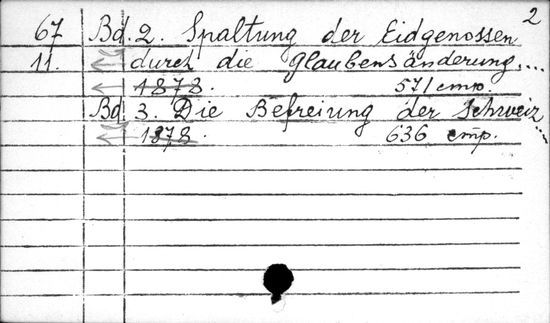 2
67 Bd. 2. Spaltung der Eidgenossen
11. durch die Glaubensänderung...
1878. 571 cmp.
Bd. 3. Die Befreiung der Schweiz...
1878. 636 cmp.